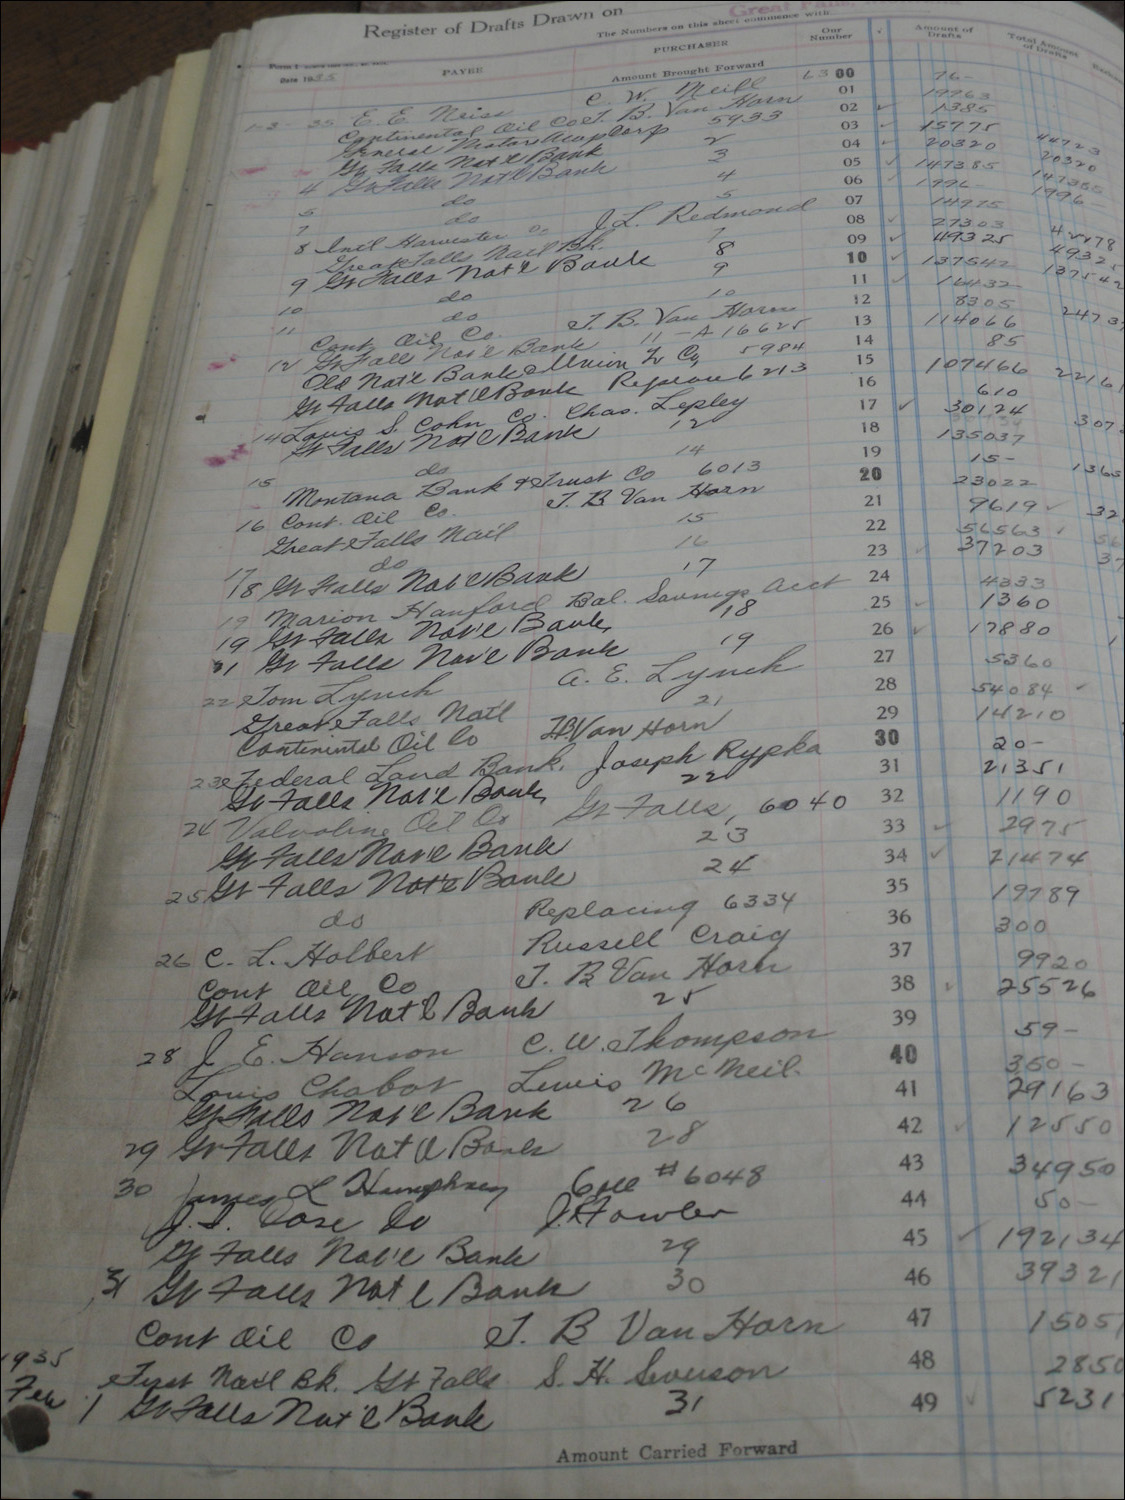 Register of Drafts Drawn on Great Falls,
The Numbers on this sheet commence with
Date 1935 PAYEE PURCHASER Our Number Amount of Drafts Total Amount of Drafts
Amount Brought Forward
1-3 35 E. E. C. W. 6300 76-
Continental Oil Co J. B. Van Horn 01
General Motors Accep Corp 5933 02 1385
Gr Falls Nat'l Bank 2 03 15775
4 Gr Falls Nat'l Bank 3 04 20320 20320
5 do 4 05 147385 147385
7 do 5 06 1996- 1996-
8 Intl Harvester Co J. L. Redmond 07 14975
Great Falls Natl Bk. 7 08 27303
9 Gr Falls Nat'l Bank 8 09 49325
10 do 9 10 137542 137542
11 do 10 11 16432
Cont Oil Co. J. B. Van Horn 12 8305
12 Gr Fall Nat'l Bank 11 - A 16625 13 114066
Old Nat'l Bank & Union Tr Co, 5984 14 85
Gr Falls Nat'l Bank 6213 15 107466
14 Louis S. Cohn Co. Chas. Lepley 16 610
Gr Falls Nat'l Bank 12 17 30124
do 14 18 135037
15 Montana Bank & Trust Co 6013 19 15-
16 Cont. Oil Co. J. B Van Horn 20 23022
Great Falls Natl 15 21 9619
17 do 16 22 56563
18 Gr Falls Nat'l Bank 17 23 37203
19 Marion Hanford Bal. Savings Acct 24 4333
19 Gr Falls Nat'l Bank, 18 25 1360
21 Gr Falls Nat'l Bank 19 26 17880
22 Tom Lynch A. E. Lynch 27 5360
Great Falls Nat'l 21 28 54084
Continental Oil Co J B Van Horn 29 14210
23 Federal Land Bank, Joseph Rypka 30 20-
Gr Falls Nat'l Bank, 22 31 21351
24 Valvoline Oil Co Gr Falls, 6040 32 1190
Gr Falls Nat'l Bank 23 33 2975
25 Gr Falls Nat'l Bank 24 34 21474
do Replacing 6334 35 19789
26 C. L. Holbert Russell Craig 36 300
Cont Oil Co J. B Van Horn 37 9920
Gr Falls Nat'l Bank 25 38 25526
28 J. E. Hanson C. W. Thompson 39 59-
Louis Chabot Lewis McNeil. 40 350-
Gr Falls Nat'l Bank 26 41 29163
29 Gr Falls Nat'l Bank 28 42 12550
30 James L Humphrey #6048 43 34950
J. I. Case Co J. Fowler 44 50-
Gr Falls Nat'l Bank 29 45 192134
31 Gr Falls Nat'l Bank 30 46 39321
Cont Oil Co J. B Van Horn 47 1505
1935 First Nat'l Bk. Gr Falls S. H. 48 2850
Feb 1 Gr Falls Nat'l Bank 31 49 5231
Amount Carried Forward